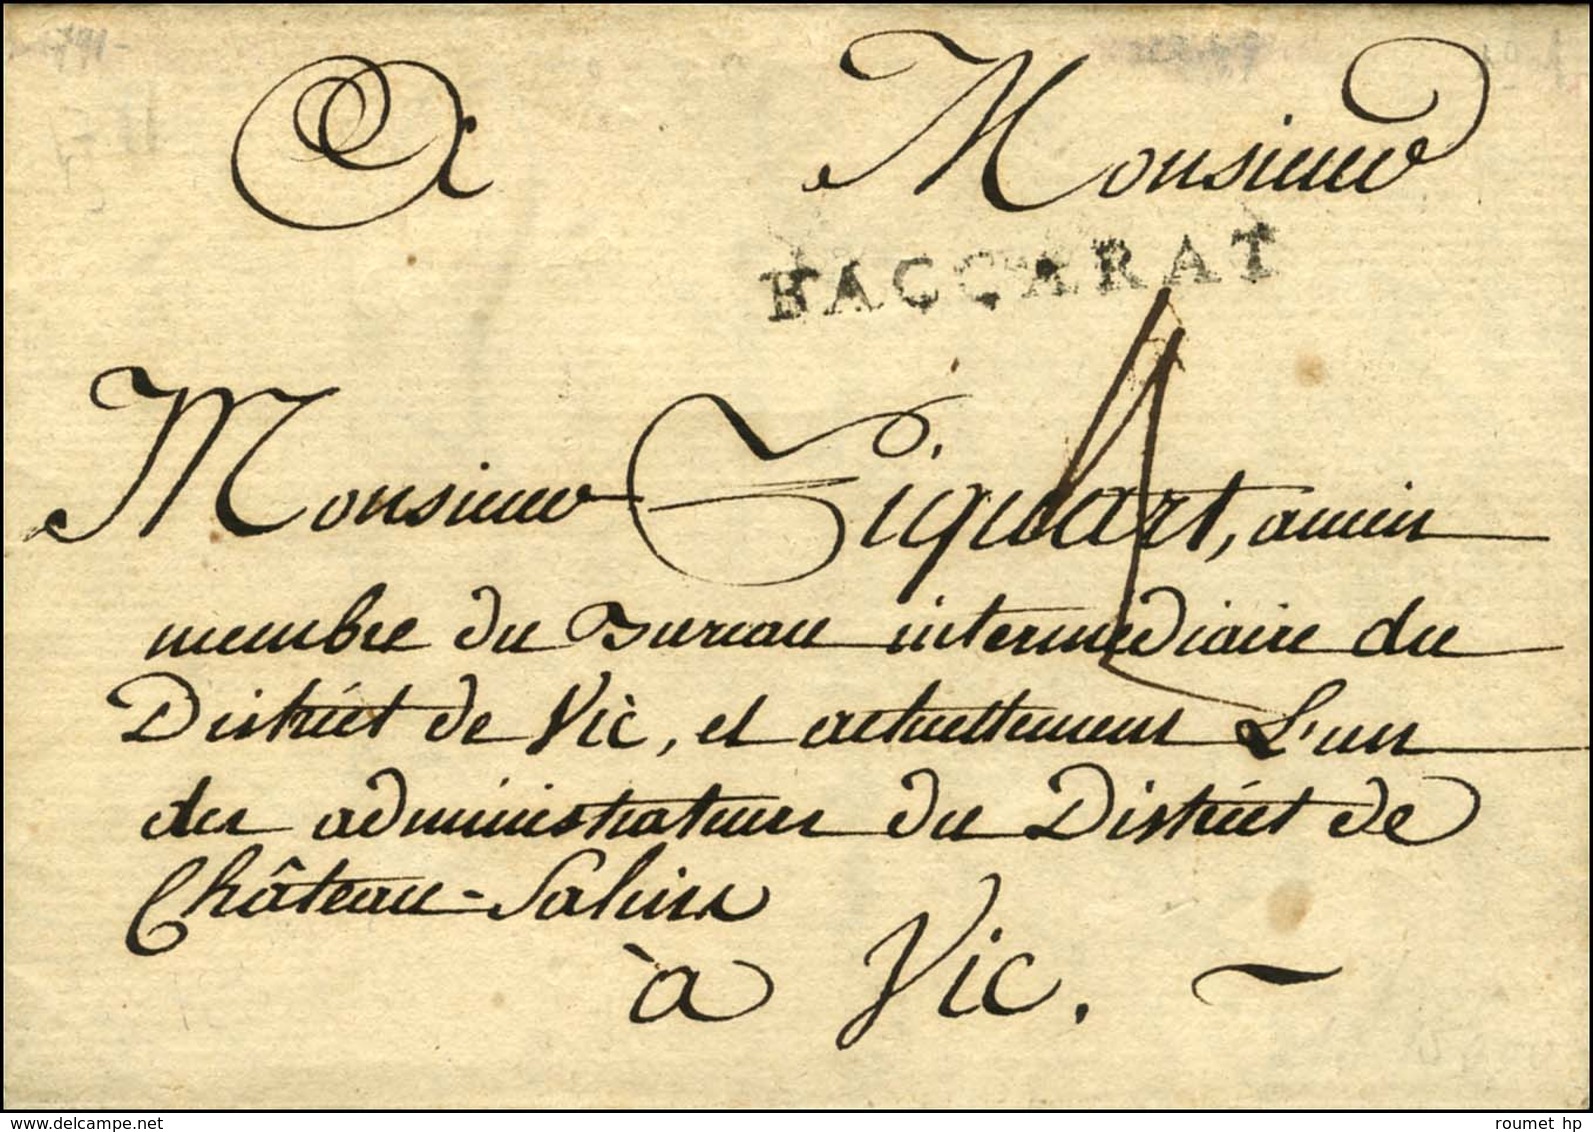 A Monsieur
BACCARAT
Monsieur Siquart, ancien
membre du Bureau intermediaire du
District de Vic, et actuellement L'un
des administrateurs du District de
Château-Salins
à Vic.
delcampe.net
roumet hp